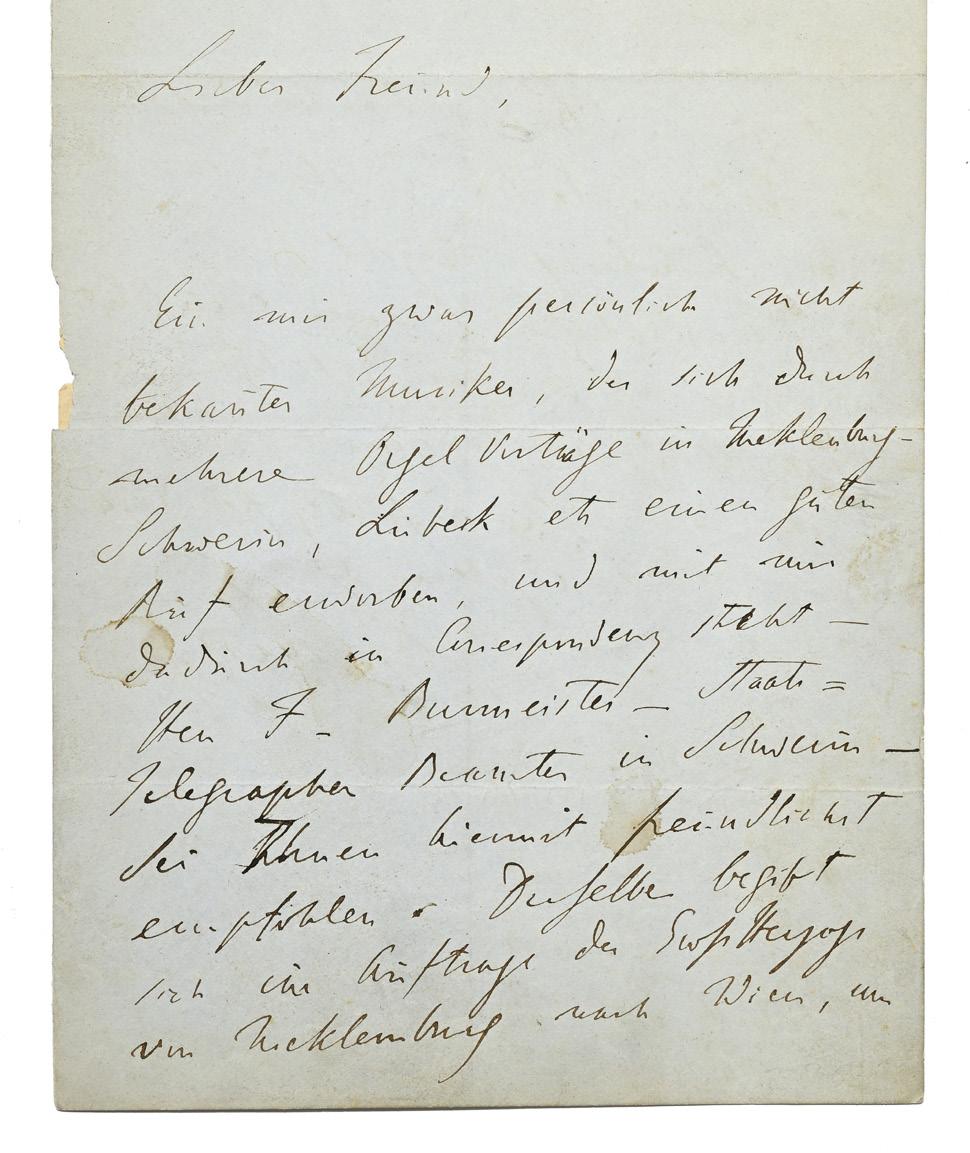 Lieber Freund,
Ein mir zwar persönlich nicht
bekañter Musiker, der sich durch
mehrere Orgel Vorträge in Mecklenburg-
Schwerin, Lübeck etc einen guten
Ruf erworben, und mit mir
dadurch in Correspondenz steht —
Herr F. Burmeister — Staats =
Telegraphen Beamter in Schwerin —
sei Ihnen hiermit freundlichst
empfohlen. Derselbe begibt
sich im Auftrage des Großherzogs
von Mecklenburg nach Wien, um